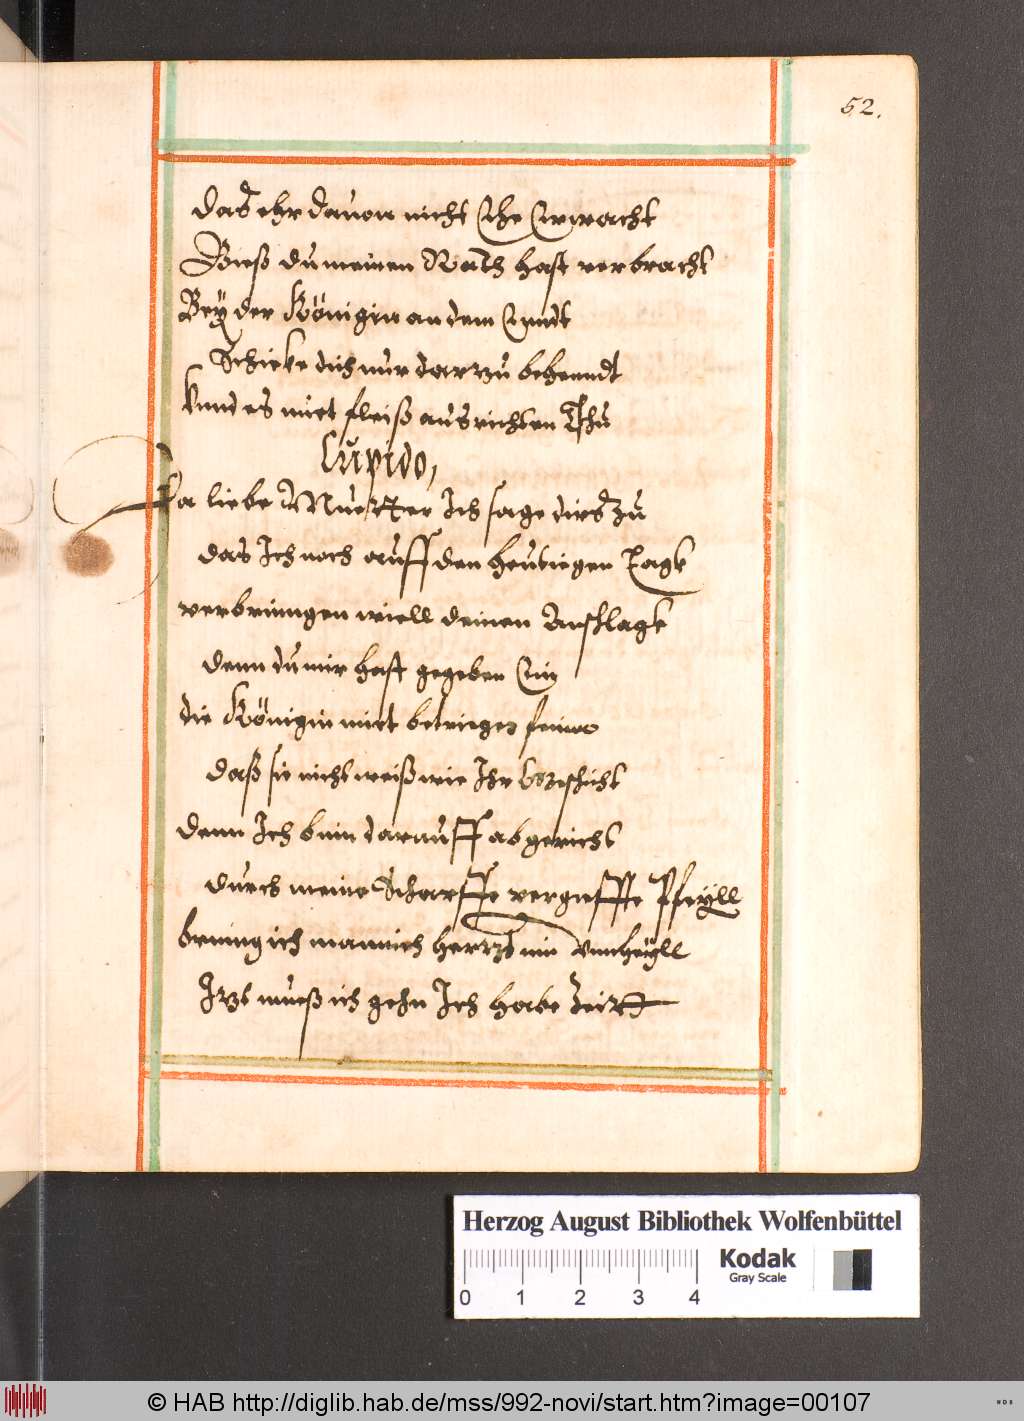 52.
Das ehr dauon nicht Ehe Erwacht
Bieß du meinen Rath hast verbracht
Bey der Königin an dem Enndt
Schicke dich nur darzu behenndt
Vnnd es miet fleiß ausrichten Thu
Cupido,
Ja liebe Muetter Ich sage dirs zu
das Ich noch auff den heutiegen Tagk
verbrinngen wiell deinen Anschlagk
denn du mir hast gegeben Ein
die Königin miet betriegen fein
daß sie nicht weiß wie Ihr geschicht
denn Ich binn darauff abgericht
durch meine Scharffe vergieffte Pfeyll
brinng ich mannich Hertz inn vnnheyll
Itzt mueß ich gehn Ich habe Zeitt
Herzog August Bibliothek Wolfenbüttel
Kodak
Gray Scale
0 1 2 3 4
© HAB http://diglib.hab.de/mss/992-novi/start.htm?image=00107